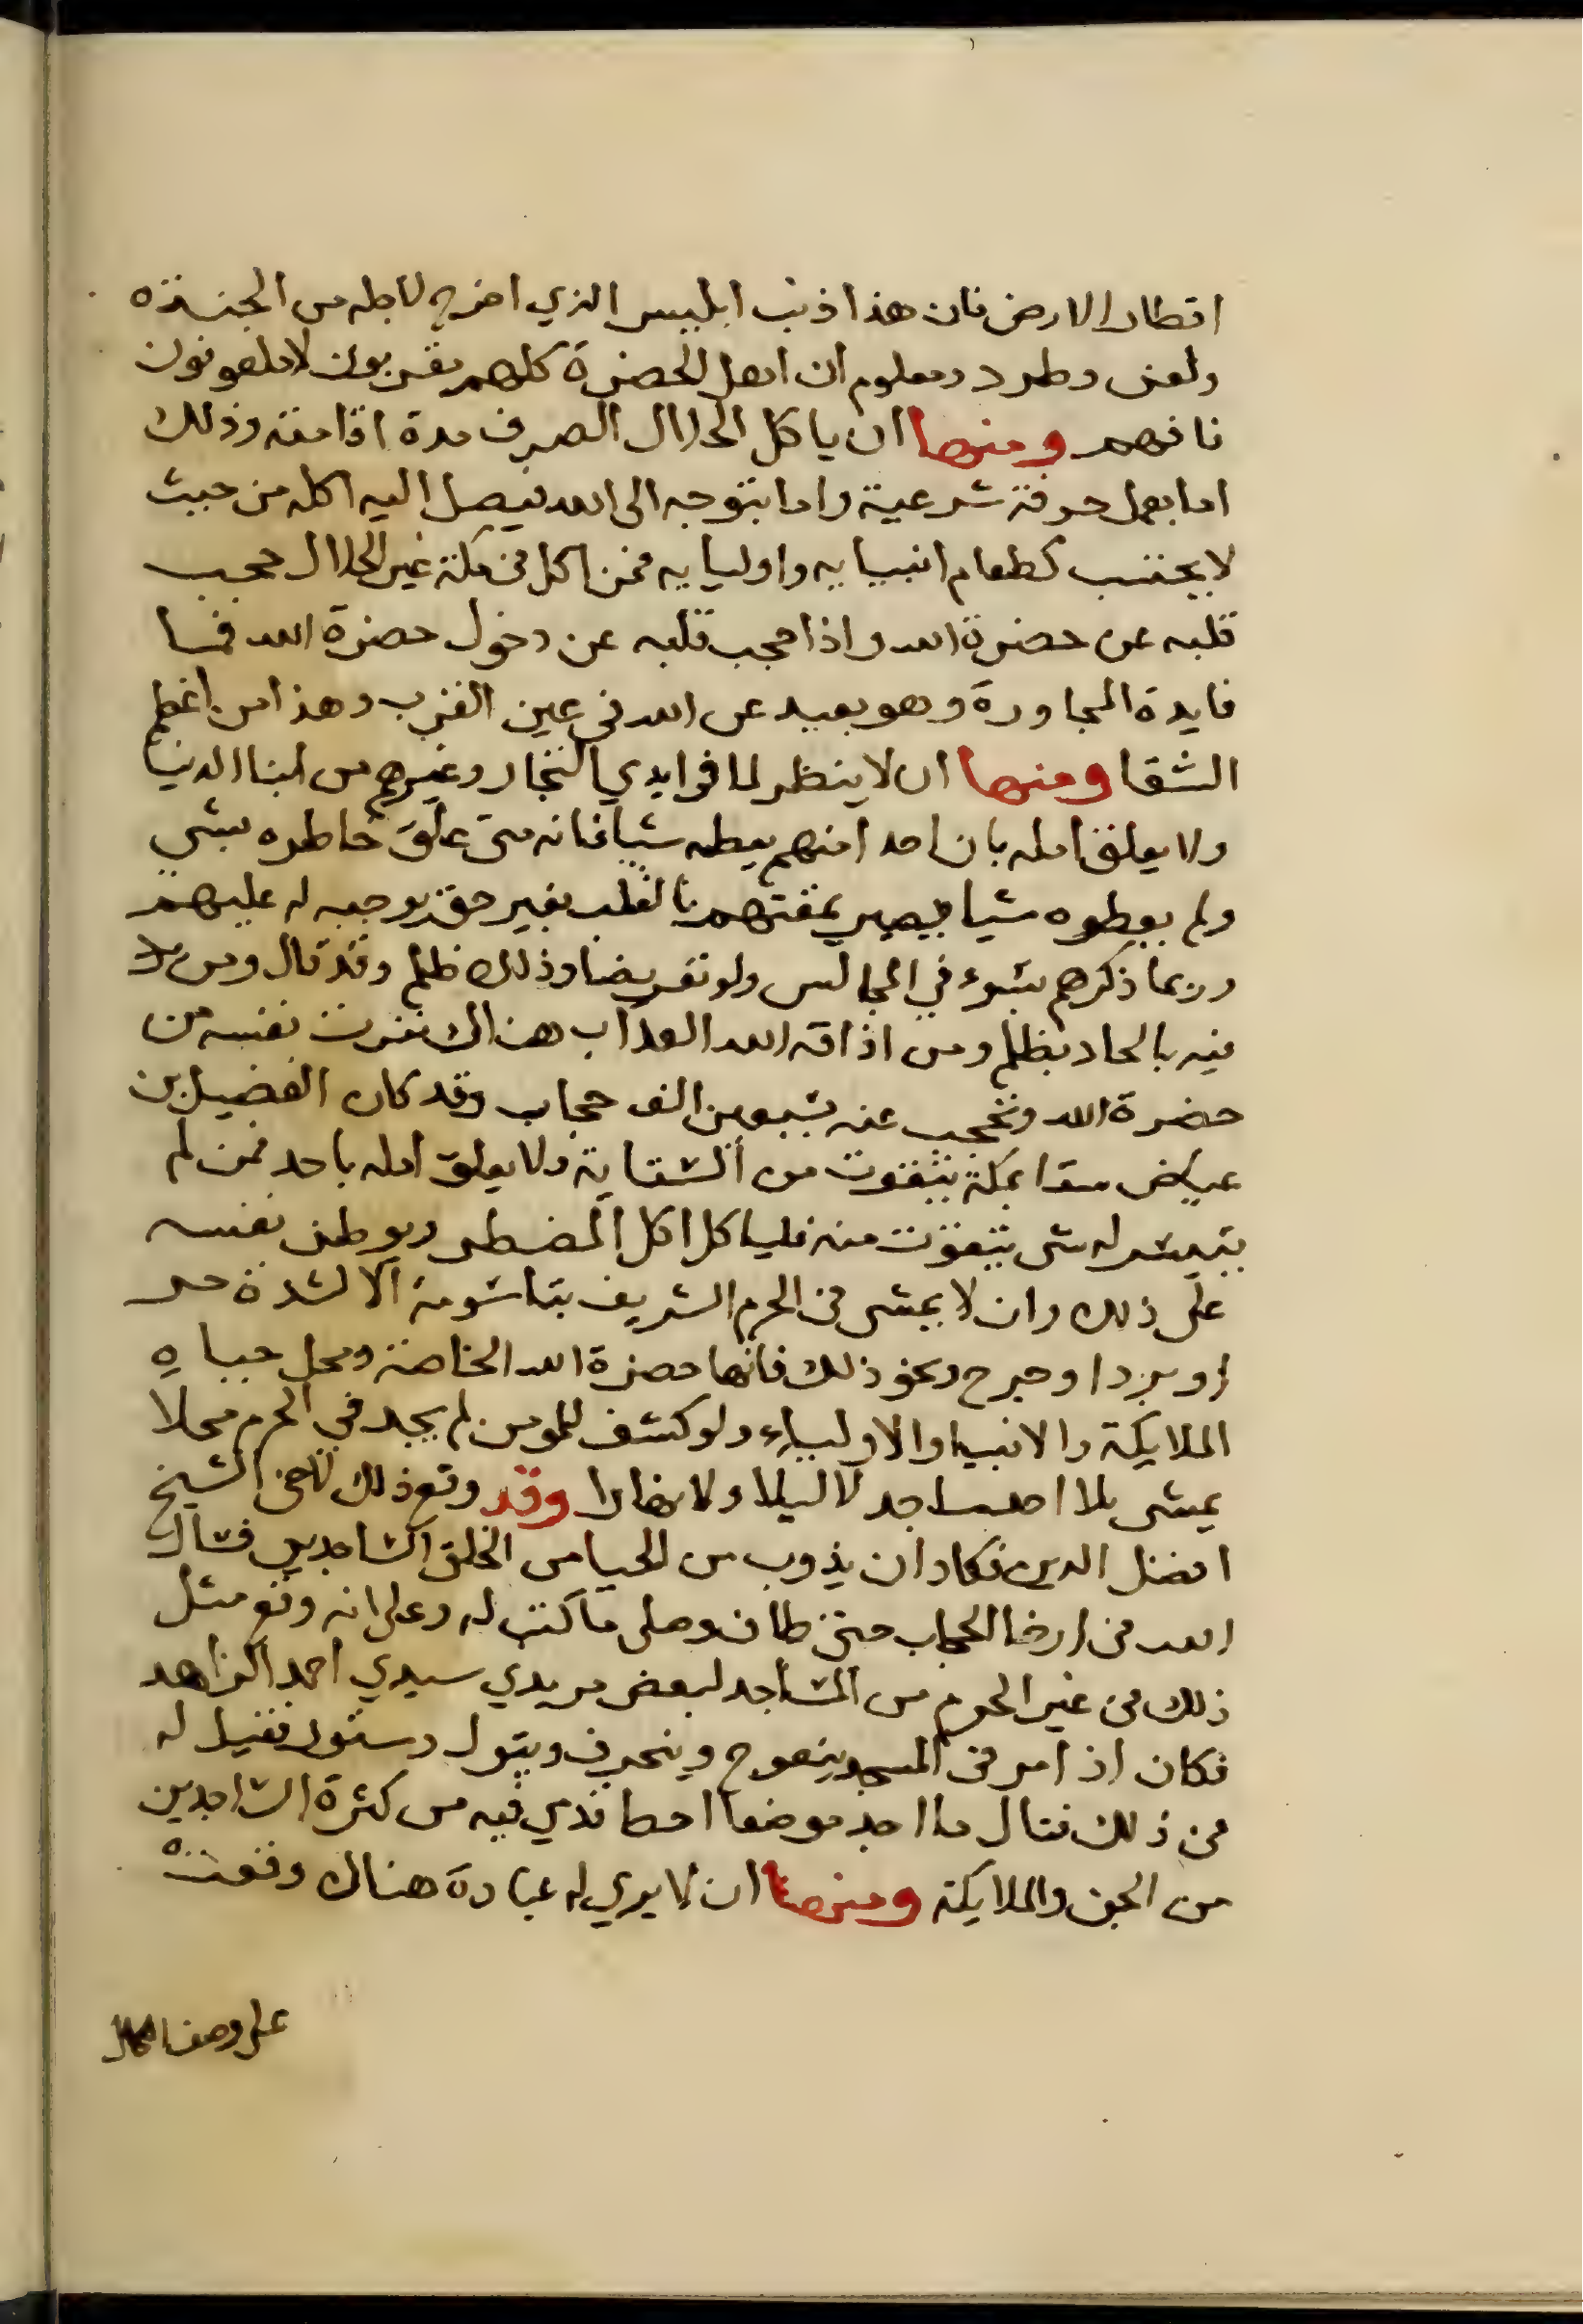 اقطار الارض فان هذا ذنب ابليس الذي اخرج لاجله من الجنة
ولعن وطرد ومعلوم ان اهل الحضرة كلهم مقربون لا ملعونون
فافهم ومنها ان ياكل الحلال الصرف مدة اقامته وذلك
اما بعمل حرفة شرعية واما بتوجه الى الله فيصل اليه اكله من حيث
لا يحتسب كطعام انبيايه واوليايه فمن اكل في مكة غير الحلال حجب
قلبه عن حضرة الله واذا حجب قلبه عن دخول حضرة الله فما
فايدة المجاورة وهو بعيد عن الله في عين القرب وهذا من اعظم
الشقا ومنها ان لا ينظر لما في ايدي التجار وغيرهم من ابنا الدنيا
ولا يعلق امله بان احدا منهم يعطه شيا فانه متى علق خاطره بشي
ولم يعطوه شيا فيصير يمقتهم بالقلب بغير حق يوجبه له عليهم
وربما ذكرهم بسوء في المجالس ولو تعريضا وذلك ظلم وقد قال ومن يرد
فيه بالحاد بظلم ومن اذاقه الله العذاب هناك نفرت نفسه من
حضرة الله وتحجب عنه بسبعين الف حجاب وقد كان الفضيل بن
عياض سقا بمكة يتقوت من السقاية ولا يعلق امله باحد فمن لم
يتيسر له شي يتقوت منه فلياكل اكل المضطر ويوطن نفسه
على ذلك وان لا يمشي في الحرم الشريف بتاسومة الا لشدة حر
او برد او جرح ونحو ذلك فانها حضرة الله الخاصة ومحل جباه
الملايكة والانبيا والاولياء ولو كشف للمومن لم يجد في الحرم محلا
يمشي بلا احد ساجد لا ليلا ولا نهارا وقد وقع ذلك لاخي الشيخ
افضل الدين فكاد ان يذوب من الحيا من الخلق الساجدين فسال
الله في ارخا الحجاب حتى طاف وصلى ما كتب له وعلى انه وقع مثل
ذلك في غير الحرم من المساجد لبعض مريدي سيدي احمد الزاهد
فكان اذا مر في المسجد ينعوج وينحرف ويقول دستور فقيل له
في ذلك فقال ما اجد موضعا احط قدمي فيه من كثرة الساجدين
من الجن والملايكة ومنها ان لا يرى له عبادة هناك وقعت
على وصف الكمال